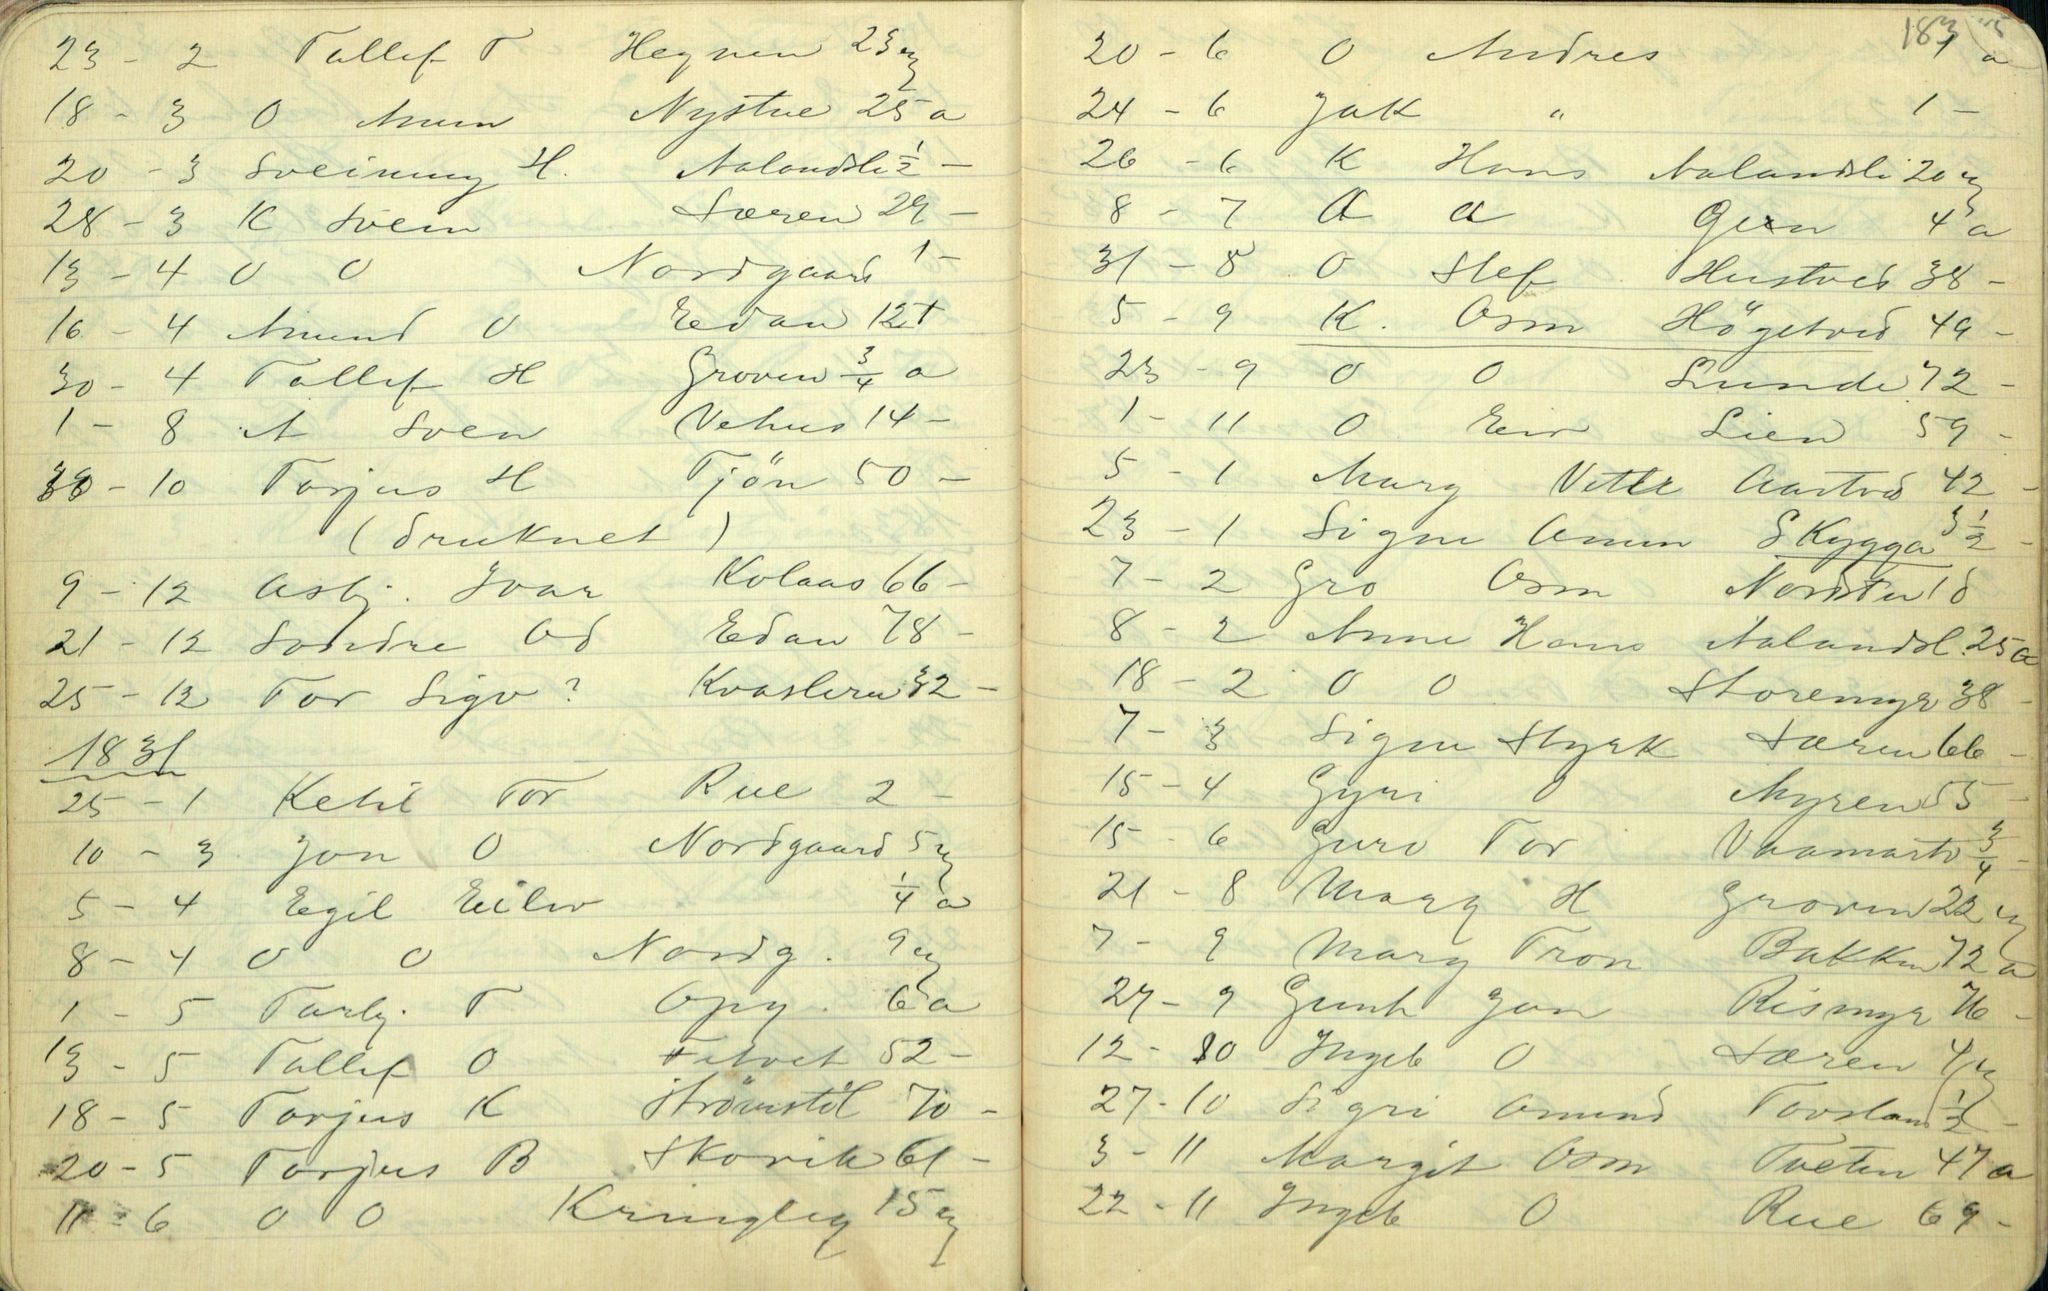 23 - 2 Tallef T Hegnen 23 u
18 - 3 O Amun Nystue 25 a
20 - 3 Sveinung H. Aalandsli ½ -
28 - 3 K Svein Særen 29 -
13 - 4 O O Nordgaard 1 -
16 - 4 Amund O Edan 12 t
30 - 4 Tallef H Groven ¾ a
1 - 8 A Sven Vehus 14 -
- 10 Torjus H Tjön 50 -
(druknet)
9 - 12 Asbj. Ivar Kolaas 66 -
21 - 12 Sondre Od Edan 78 -
25 - 12 Tor Sigv? Kvasleru 32 -
1831
25 - 1 Ketil Tor Rue 2 -
10 - 3 Jon O Nordgaard 5 u
5 - 4 Egil Eilev ¼ a
8 - 4 O O Nordg. 9 u
1 - 5 Tarbj. T Opg. 6 a
13 - 5 Tallef O 52 -
18 - 5 Torjus K Strömstöl 70 -
20 - 5 Torjus B Skorik 61 -
11 - 6 O O Kringleg 15 u
183
20 - 6 O Andres 1 a
24 - 6 Jak " 1 -
26 - 6 K Hans Aalandsli 20 u
8 - 7 A A 4 a
31 - 8 O Stef Hustved 38 -
5 - 9 K. Osm Högetved 49 -
23 - 9 O O Lunde 72 -
1 - 11 O Eiv Lien 59 -
5 - 1 Marg Vetle Aastved 42 -
23 - 1 Signe Amun Skygga 3 ½ -
7 - 2 Gro Osm Nordstu 1 d
8 - 2 Anne Hans Aalandsl. 25 a
18 - 2 O O Storemyr 38 -
7 - 3 Signe Styrk Særen 66 -
15 - 4 Gyri O Myren 55 -
15 - 6 Guro Tor Vaamartv ¾ -
21 - 8 Marg H Groven 22 u
7 - 9 Marg Tron Bakken 72 a
29 - 9 Gunh Jon Rismyr 76 -
12 - 10 Ingeb O Særen 4 u
27 - 10 Sigri Amund Tovslan ½ -
3 - 11 Margit Osm Tveten 47 a
22 - 11 Ingeb O Rue 69 -